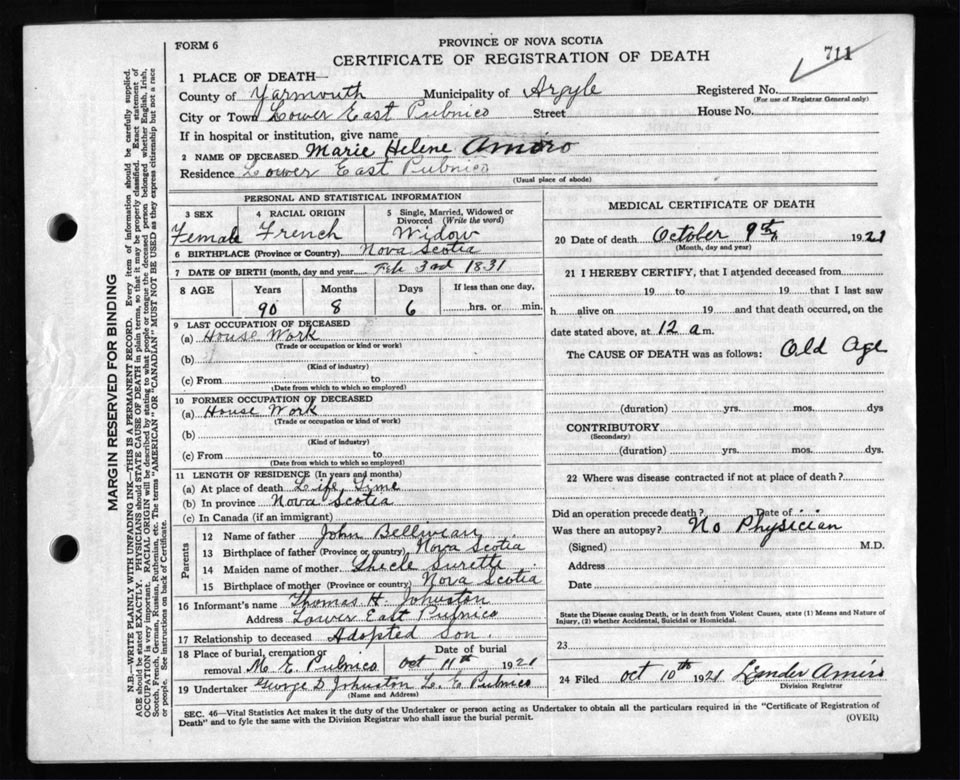 FORM 6
PROVINCE OF NOVA SCOTIA
CERTIFICATE OF REGISTRATION OF DEATH
711
1 PLACE OF DEATH—
County of Yarmouth Municipality of Argyle Registered No.
(For use of Registrar General only)
City or Town Lower East Pubnico Street House No.
If in hospital or institution, give name
2 NAME OF DECEASED Marie Helene Amiro
Residence Lower East Pubnico
(Usual place of abode)
PERSONAL AND STATISTICAL INFORMATION
3 SEX 4 RACIAL ORIGIN 5 Single, Married, Widowed or Divorced (Write the word)
Female French Widow
6 BIRTHPLACE (Province or Country) Nova Scotia
7 DATE OF BIRTH (month, day and year) Feb 3rd 1831
8 AGE Years Months Days If less than one day,
90 8 6 hrs. or min.
9 LAST OCCUPATION OF DECEASED
(a) House Work
(Trade or occupation or kind or work)
(b)
(Kind of industry)
(c) From to
(Date from which to which so employed)
10 FORMER OCCUPATION OF DECEASED
(a) House Work
(Trade or occupation or kind of work)
(b)
(Kind of industry)
(c) From to
(Date from which to which so employed)
11 LENGTH OF RESIDENCE (In years and months)
(a) At place of death Life Time
(b) In province Nova Scotia
(c) In Canada (if an immigrant)
Parents
12 Name of father John Bellivieau
13 Birthplace of father (Province or country) Nova Scotia
14 Maiden name of mother Surette
15 Birthplace of mother (Province or country) Nova Scotia
16 Informant's name Thomas H. Johnston
Address Lower East Pubnico
17 Relationship to deceased Adopted Son.
18 Place of burial, cremation or removal M. E. Pubnico Date of burial Oct 11th 1921
19 Undertaker George D Johnston L. E Pubnico
(Name and Address)
MEDICAL CERTIFICATE OF DEATH
20 Date of death October 9th 1921
(Month, day and year)
21 I HEREBY CERTIFY, that I attended deceased from
19 to 19 that I last saw
h alive on 19 and that death occurred, on the
date stated above, at 12 a m.
The CAUSE OF DEATH was as follows: Old Age
(duration) yrs. mos. dys
CONTRIBUTORY
(Secondary)
(duration) yrs. mos. dys.
22 Where was disease contracted if not at place of death?
Did an operation precede death? Date of
Was there an autopsy? No Physician
(Signed) M.D.
Address
Date
State the Disease causing Death, or in death from Violent Causes, state (1) Means and Nature of Injury, (2) whether Accidental, Suicidal or Homicidal.
23
24 Filed Oct 10th 1921 Leander Amiro
Division Registrar
SEC. 46—Vital Statistics Act makes it the duty of the Undertaker or person acting as Undertaker to obtain all the particulars required in the "Certificate of Registration of
Death" and to fyle the same with the Division Registrar who shall issue the burial permit.
(OVER)
MARGIN RESERVED FOR BINDING
N.B.—WRITE PLAINLY WITH UNFADING INK—THIS IS A PERMANENT RECORD. Every item of information should be carefully supplied.
AGE should be stated EXACTLY. PHYSICIANS should STATE CAUSE OF DEATH in plain terms, so that it may be properly classified. Exact statement of
OCCUPATION is very important. RACIAL ORIGIN will be described by stating to what people or tongue the deceased person belonged whether English, Irish,
Scotch, French, German, Russian, Ruthenian, etc. The terms "AMERICAN" OR "CANADIAN" MUST NOT BE USED as they express citizenship but not a race
or people. See instructions on back of Certificate.